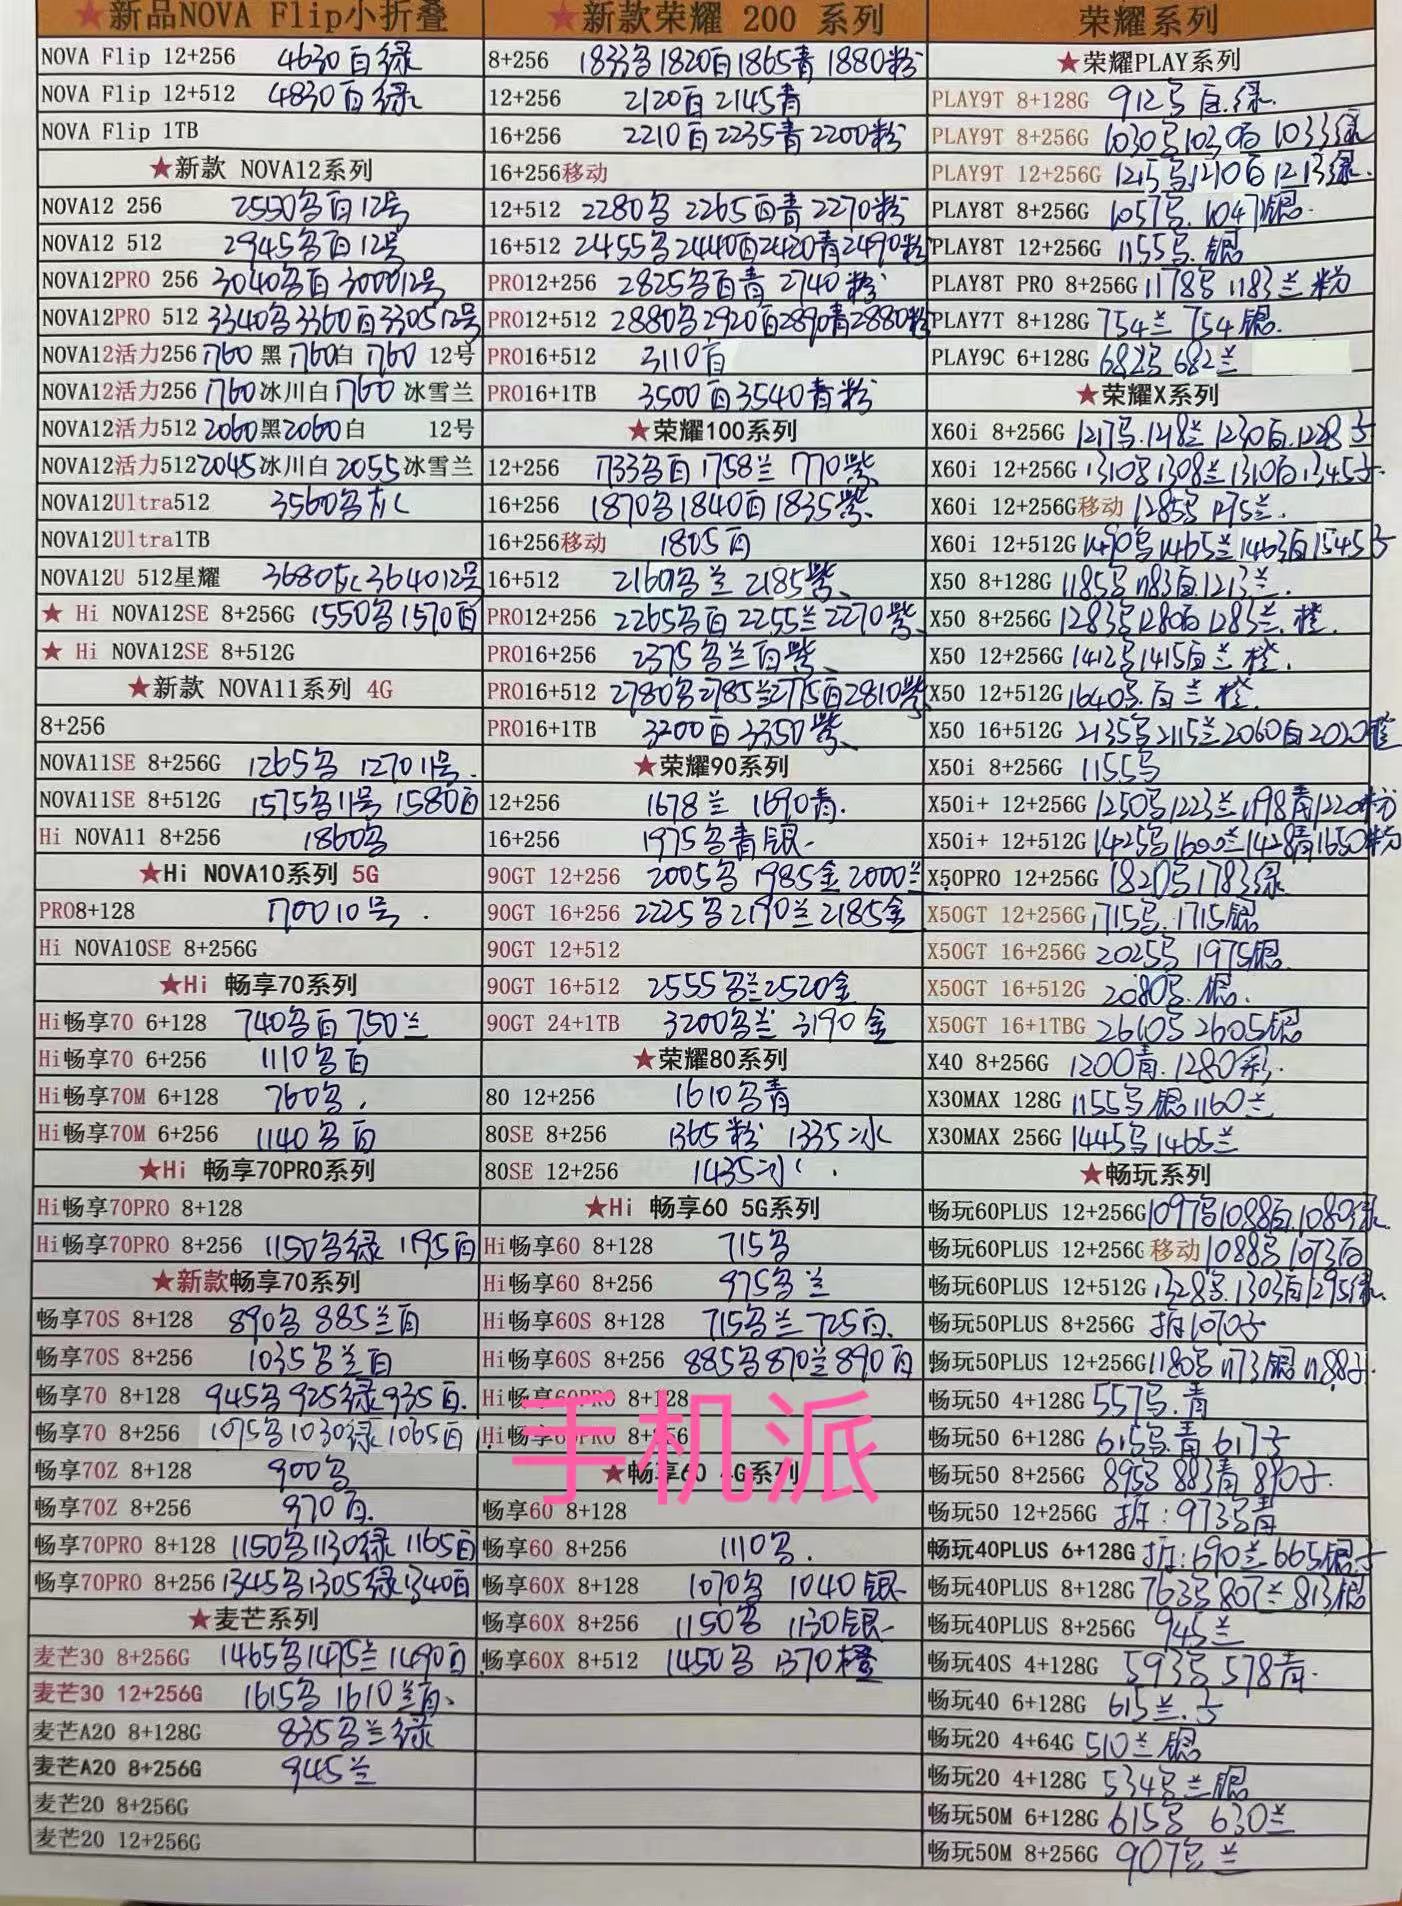 ★新品NOVA Flip小折叠
NOVA Flip 12+256 4630百绿
NOVA Flip 12+512 4830百绿
NOVA Flip 1TB
★新款 NOVA12系列
NOVA12 256 2550名百12号
NOVA12 512 2945名百12号
NOVA12PRO 256 3040名百 300012号
NOVA12PRO 512 3340名3360百330512号
NOVA12活力256 1760 黑 1760白 1760 12号
NOVA12活力256 1760冰川白 1760 冰雪兰
NOVA12活力512 2060黑2060白 12号
NOVA12活力512 2045冰川白 2055冰雪兰
NOVA12Ultra512 3560名灰
NOVA12Ultra1TB
NOVA12U 512星耀 3680灰364012号
★ Hi NOVA12SE 8+256G 1550名1570百
★ Hi NOVA12SE 8+512G
★新款 NOVA11系列 4G
8+256
NOVA11SE 8+256G 1265名 127011号.
NOVA11SE 8+512G 1575名11号 1580百
Hi NOVA11 8+256 1860名
★Hi NOVA10系列 5G
PRO8+128 170010号.
Hi NOVA10SE 8+256G
★Hi 畅享70系列
Hi畅享70 6+128 740名百 750兰
Hi畅享70 6+256 1110名百
Hi畅享70M 6+128 760名.
Hi畅享70M 6+256 1140名百
★Hi 畅享70PRO系列
Hi畅享70PRO 8+128
Hi畅享70PRO 8+256 1150名绿 1195百
★新款畅享70系列
畅享70S 8+128 890名 885兰百
畅享70S 8+256 1035名兰百
畅享70 8+128 945名925绿935百.
畅享70 8+256 1075名1030绿1065百
畅享70Z 8+128 900名
畅享70Z 8+256 970百.
畅享70PRO 8+128 1150名1130绿 1165百
畅享70PRO 8+256 1345名1305绿1340百
★麦芒系列
麦芒30 8+256G 1465名1475兰1490百
麦芒30 12+256G 1615名1610兰百.
麦芒A20 8+128G 835名兰绿
麦芒A20 8+256G 945兰
麦芒20 8+256G
麦芒20 12+256G
★新款荣耀 200 系列
8+256 1833名1820百1865青1880粉
12+256 2120百2145青
16+256 2210百2235青2200粉
16+256移动
12+512 2280名 2265百青2270粉
16+512 2455名2440百2420青2490粉
PRO12+256 2825名百青 2740粉
PRO12+512 2880名2920百2890青2880粉
PRO16+512 3110百
PRO16+1TB 3500百3540青粉
★荣耀100系列
12+256 1733名百1758兰 1770紫
16+256 1870名1840百1835紫
16+256移动 1805百
16+512 2160名兰 2185紫
PRO12+256 2265名百2255兰2270紫
PRO16+256 2375名兰百紫
PRO16+512 2780名2785兰2775百2810紫
PRO16+1TB 3200百3350紫
★荣耀90系列
12+256 1678兰 1690青.
16+256 1975名青银
90GT 12+256 2005名 1985金2000兰
90GT 16+256 2225名2190兰2185金
90GT 12+512
90GT 16+512 2555名兰2520金
90GT 24+1TB 3200名兰 3190金
★荣耀80系列
80 12+256 1610名青
80SE 8+256 1365粉 1335冰
80SE 12+256 1435冰.
★Hi 畅享60 5G系列
Hi畅享60 8+128 715名
Hi畅享60 8+256 975名兰
Hi畅享60S 8+128 715名兰 725百.
Hi畅享60S 8+256 885名870兰890百
Hi畅享60PRO 8+128
Hi畅享60PRO 8+256
手机派
★畅享60 4G系列
畅享60 8+128
畅享60 8+256 1110名.
畅享60X 8+128 1070名 1040银
畅享60X 8+256 1150名 1130银
畅享60X 8+512 1450名 1370橙
荣耀系列
★荣耀PLAY系列
PLAY9T 8+128G 912名百.绿.
PLAY9T 8+256G 1030名1030百 1033绿
PLAY9T 12+256G 1215名1210百1213绿.
PLAY8T 8+256G 1057名.1047银.
PLAY8T 12+256G 1155名.银
PLAY8T PRO 8+256G 1178名 1183兰粉
PLAY7T 8+128G 754兰 754银.
PLAY9C 6+128G 682名 682兰
★荣耀X系列
X60i 8+256G 1217名.1218兰1230百.1228子
X60i 12+256G 1310名1308兰1310百1345子.
X60i 12+256G移动 1285名 1275兰.
X60i 12+512G 1490名1465兰1463百1545子
X50 8+128G 1185名1183百.1213兰.
X50 8+256G 1283名1280百1283兰.橙.
X50 12+256G 1412名1415百兰橙.
X50 12+512G 1640名.百兰橙.
X50 16+512G 2135名2115兰2060百2020橙
X50i 8+256G 1155名
X50i+ 12+256G 1250名1223兰1198青1220粉
X50i+ 12+512G 1425名1600兰1428青1650粉
X50PRO 12+256G 1820名1783绿
X50GT 12+256G 1715名.1715银
X50GT 16+256G 2025名 1975银
X50GT 16+512G 2080名.银.
X50GT 16+1TBG 2610名 2605银
X40 8+256G 1200青.1280彩.
X30MAX 128G 1155名银1160兰
X30MAX 256G 1445名1465兰
★畅玩系列
畅玩60PLUS 12+256G 1097名1088百.1080绿.
畅玩60PLUS 12+256G 移动 1088名1073百
畅玩60PLUS 12+512G 1328名.1303百1295绿.
畅玩50PLUS 8+256G 拆1070子
畅玩50PLUS 12+256G 1180名1173银1188子.
畅玩50 4+128G 557名.青
畅玩50 6+128G 615名.青 617子
畅玩50 8+256G 895名 883青 890子.
畅玩50 12+256G 拆:973名青
畅玩40PLUS 6+128G 拆:690兰665银子
畅玩40PLUS 8+128G 763名 807兰 813银
畅玩40PLUS 8+256G 945兰
畅玩40S 4+128G 593名 578青.
畅玩40 6+128G 615兰.子
畅玩20 4+64G 510兰银
畅玩20 4+128G 534名兰银
畅玩50M 6+128G 615名 630兰
畅玩50M 8+256G 907名兰